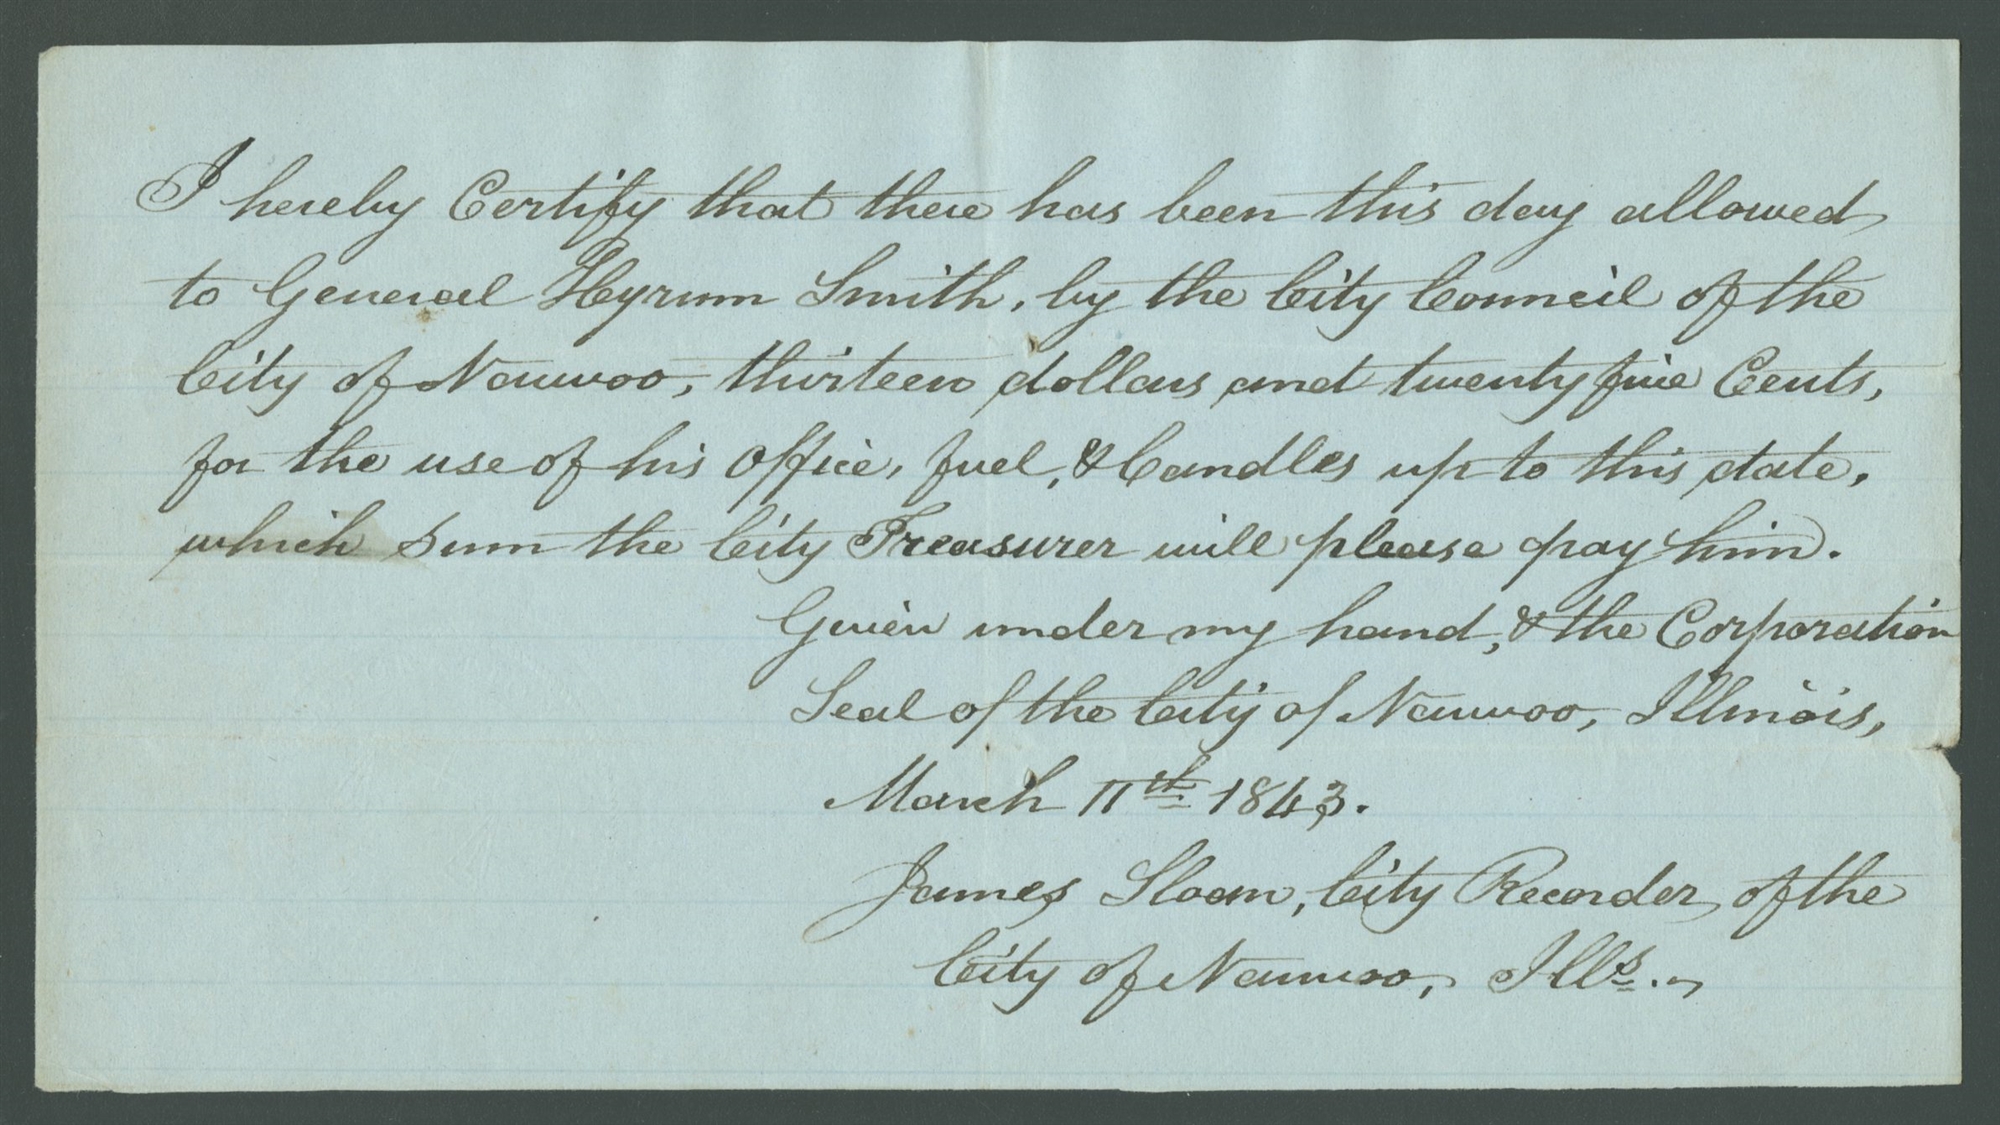 I hereby Certify that there has been this day allowed
to General Hyrum Smith, by the City Council of the
City of Nauvoo, thirteen dollars and twenty five Cents,
for the use of his Office, fuel, & Candles up to this date,
which sum the City Treasurer will please pay him.
Given under my hand, & the Corporation
Seal of the City of Nauvoo, Illinois,
March 11th 1843.
James Sloan, City Recorder of the
City of Nauvoo, Ills.